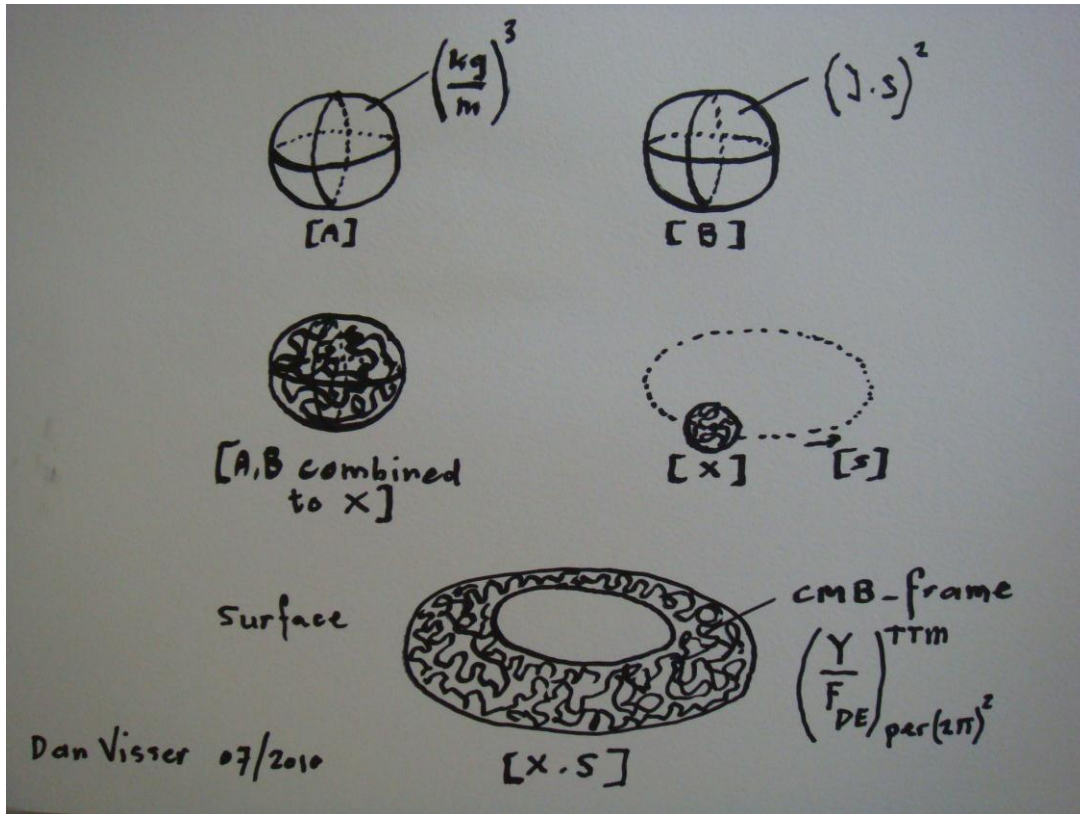 (kg/m)³
(J.s)²
[A]
[B]
[A,B combined
to X]
[X]
[S]
Surface
CMB-frame
(Y/F_DE)^TTm per(2π)²
Dan Visser 07/2010
[X.S]